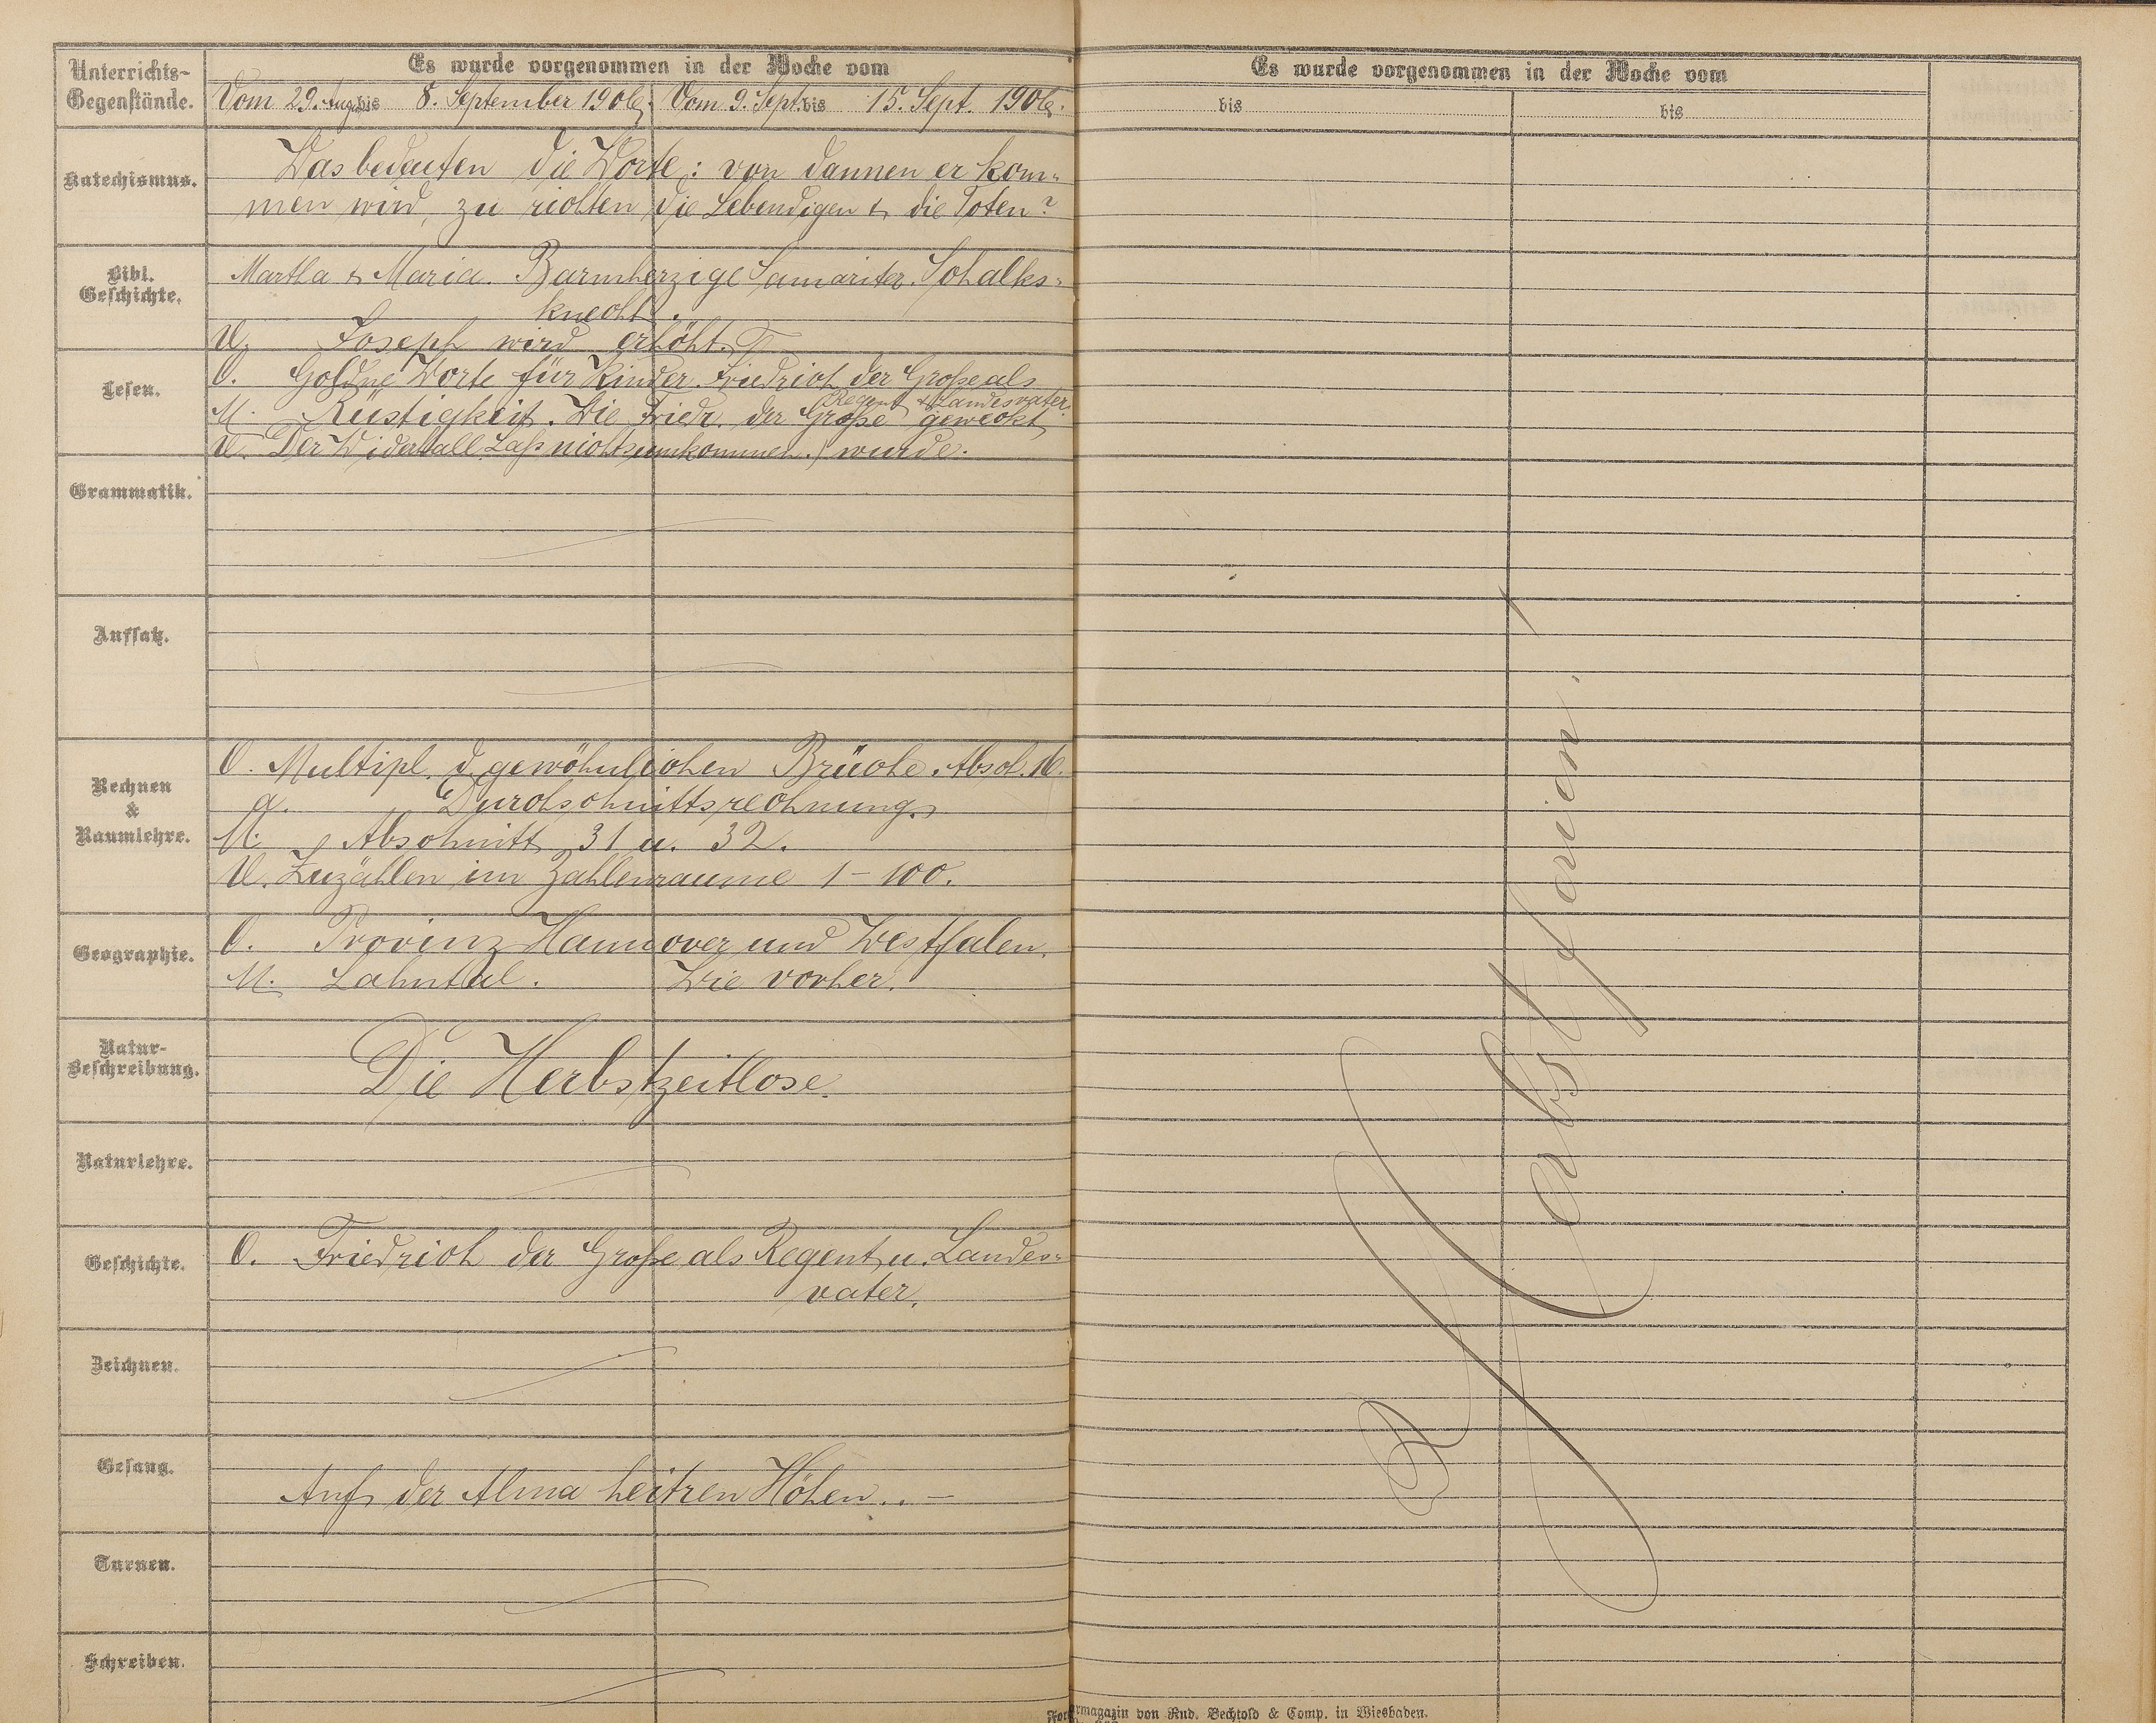 Unterrichts-
Gegenstände.
Es wurde vorgenommen in der Woche vom
Vom 29. Aug. bis 8. September 1906. Vom 9. Sept. bis 15. Sept. 1906.
Katechismus.
Was bedeuten die Worte: von dannen er kom-
men wird, zu richten die Lebendigen & die Toten?
Bibl.
Geschichte.
Martha & Maria. Barmherzige Samariter. Schalks-
knecht.
U. Joseph wird erhöht.
Lesen.
O. Goldne Worte für Kinder. Friedrich der Große als
Regent & Landesvater.
M. Rüstigkeit. Wie Friedr. der Große geweckt
U. Der Widerhall. Laß nichts umkommen.) wurde.
Grammatik.
Aufsatz.
Rechnen
&
Raumlehre.
O. Multipl. d. gewöhnlichen Brüche. Absch. 16.
a. Durchschnittsrechnung.
M. Abschnitt 31 u. 32.
U. Zuzählen im Zahlenraume 1-100.
Geographie.
O. Provinz Hannover und Westfalen.
M. Lahntal. Wie vorher.
Natur-
Beschreibung.
Die Herbstzeitlose.
Naturlehre.
Geschichte.
O. Friedrich der Große als Regent u. Landes-
vater.
Zeichnen.
Gesang.
Auf der Alma heitren Höhen.. –
Turnen.
Schreiben.
Es wurde vorgenommen in der Woche vom
bis
bis
Herbstferien.
magazin von Rud. Bechtold & Comp. in Wiesbaden.